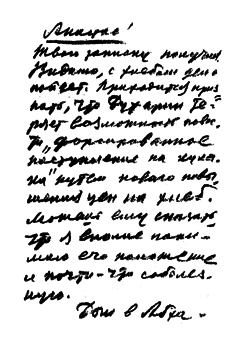 Анастас!
Твою записку получил.
Видимо, с хлебом дело
пойдет. Приходится приз
нать, что Бухарин те-
ряет возможность повес-
ти „форсированное
наступление на кула-
ка" путем нового повы-
шения цен на хлеб.
Можешь ему сказать,
что я вполне пони-
маю его положение
и почти-что соболез-
ную.
Был в Абха-